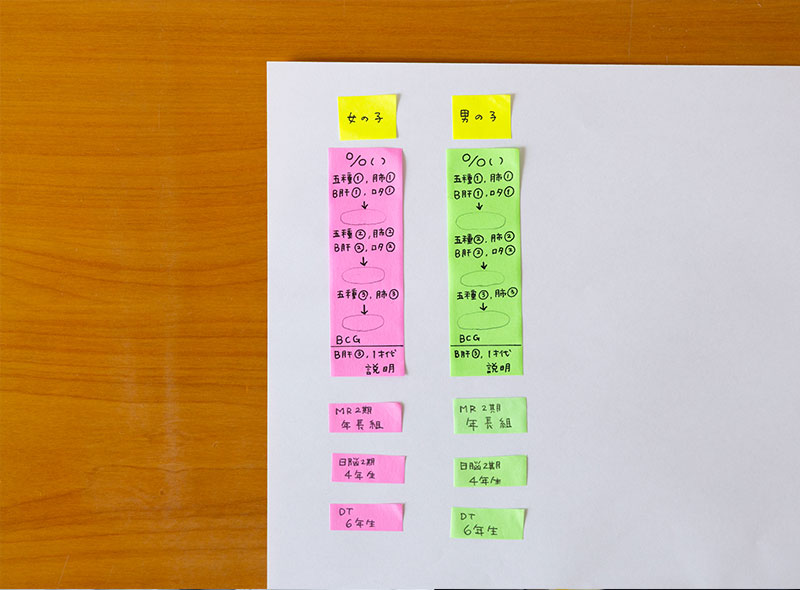 女の子
%( )
五種①, 肺①
B肝①, ロタ①
↓
五種②, 肺②
B肝②, ロタ②
↓
五種③, 肺③
↓
BCG
B肝③, 1才代
説明
MR2期
年長組
日脳2期
4年生
DT
6年生
男の子
%( )
五種①, 肺①
B肝①, ロタ①
↓
五種②, 肺②
B肝②, ロタ②
↓
五種③, 肺③
↓
BCG
B肝③, 1才代
説明
MR2期
年長組
日脳2期
4年生
DT
6年生